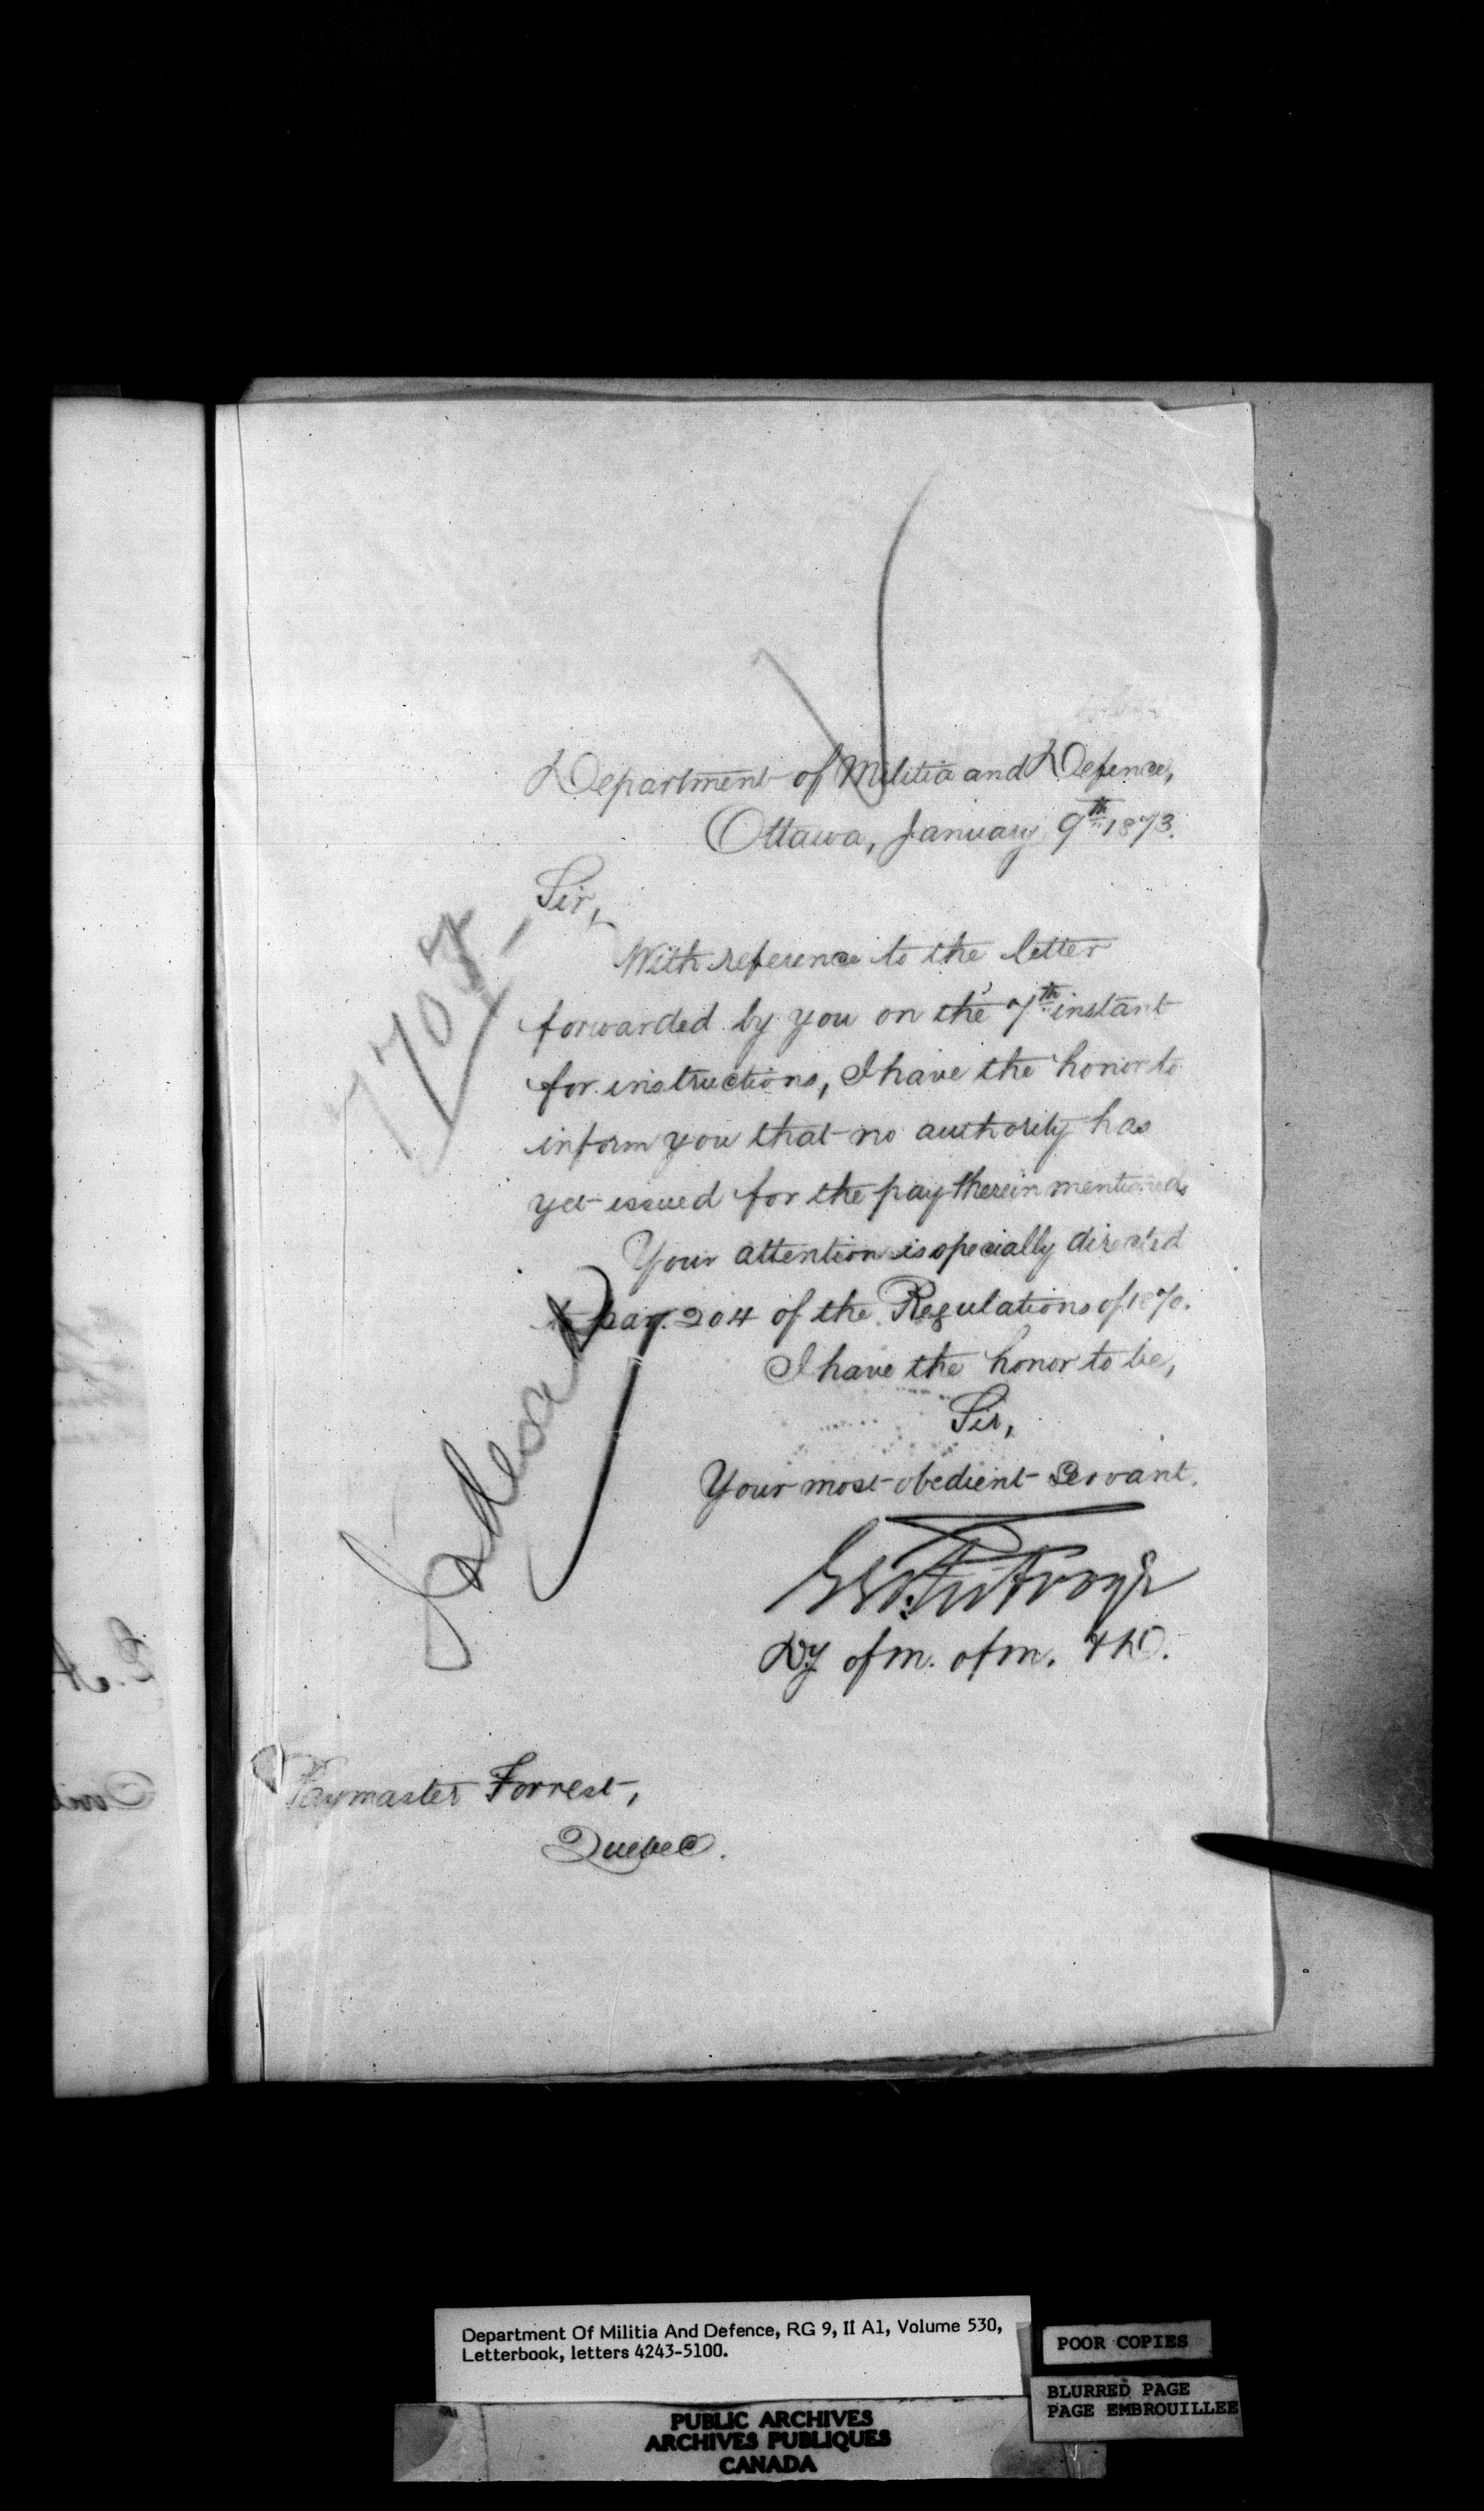 Department of Militia and Defence,
Ottawa, January 9th 1873.
7707
Sir,
With reference to the letter
forwarded by you on the 7th instant
for instructions, I have the honor to
inform you that no authority has
yet issued for the pay therein mentioned.
Your attention is specially directed
to par. 204 of the Regulations of 1870.
I have the honor to be,
Sir,
Your most obedient Servant.
Dy of M. of M. & D.
Paymaster Forrest,
Quebec.
Department Of Militia And Defence, RG 9, II A1, Volume 530,
Letterbook, letters 4243-5100.
POOR COPIES
BLURRED PAGE
PAGE EMBROUILLEE
PUBLIC ARCHIVES
ARCHIVES PUBLIQUES
CANADA